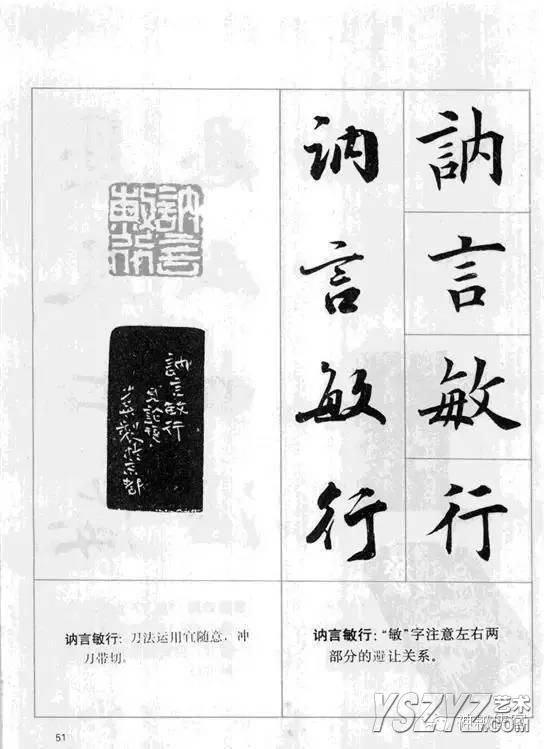 訥言敏行
訥言敏行
訥言敏行
訥言敏行
讷言敏行：刀法运用宜随意，冲
刀带切。
讷言敏行：“敏”字注意左右两
部分的避让关系。
51
YSZYZ艺术
.COM